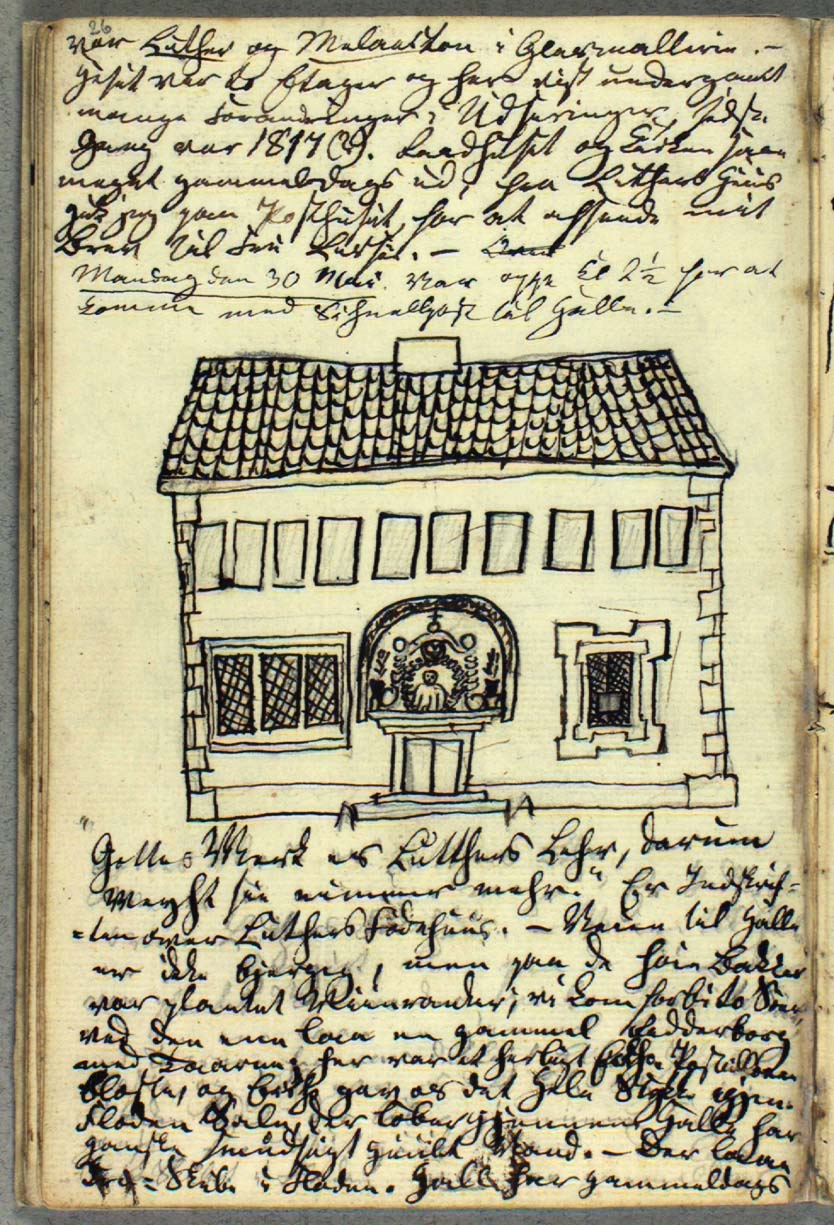 26
var Luther og Melancton i Glasmallerie. –
Huset var to Etager og har vist undergaaet
mange Forandringer i Udseeringer, sidste
Gang var 1817(?). Raadhuset og Kirken saae
meget gammeldags ud; fra Luthers Huus
gik jeg paa Posthuset for at afsende mit
Brev til Fru
Mandag den 30 Mai. Var oppe Kl 2½ for at
komme med Schnellpost til Halle. –
"Gottes Werk es Lutthers Lehr, darum
vergeht sie nimmer mehr." Er Indskrif=
=ten over Luthers Fødehuus. – Veien til Halle
er ikke bjergig, men paa de høie Bakker
var plantet Viinranker; vi kom forbi to Søer,
ved den ene laae en gammel Ridderborg
med Taarne, her var et herligt Echo, Postillonen
blæste, og Echo gav os det hele Stykke igjen.
Floden Sale, der løber gjennem Halle har
ganske smudsigt guult Vand. – Der laae
Skibe i Floden. Halle har gammeldags